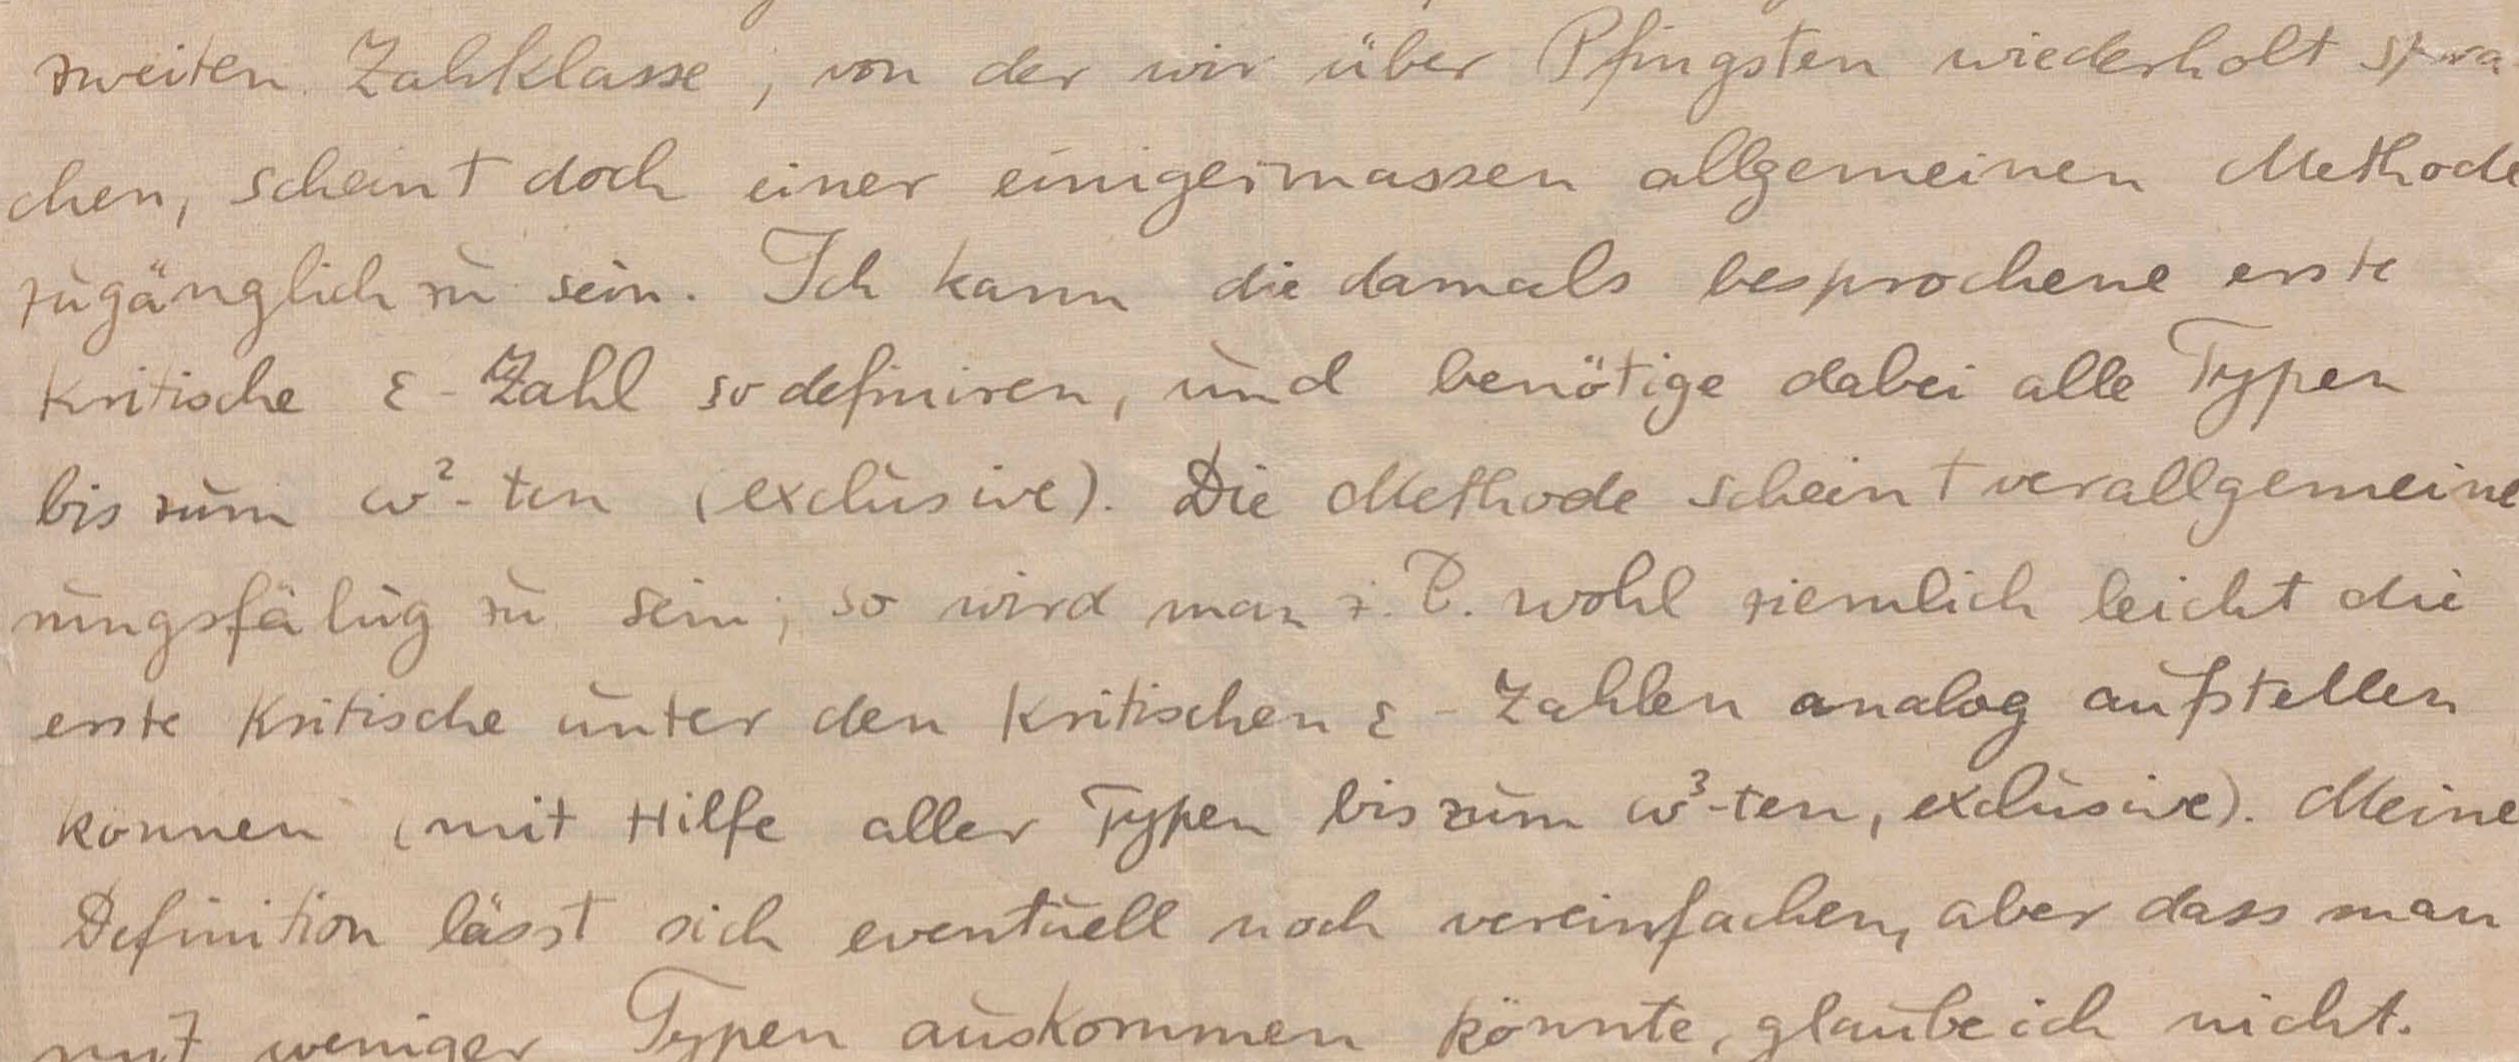 zweiten Zahlklasse, von der wir über Pfingsten wiederholt spra
chen, scheint doch einer einigermassen allgemeinen Methode
zugänglich zu sein. Ich kann die damals besprochene erste
kritische ε-Zahl so definiren, und benötige dabei alle Typen
bis zum ω²-ten (exclusive). Die Methode scheint verallgemeine
rungsfähig zu sein; so wird man z. B. wohl ziemlich leicht die
erste kritische unter den kritischen ε-Zahlen analog aufstellen
können (mit Hilfe aller Typen bis zum ω³-ten, exclusive). Meine
Definition lässt sich eventuell noch vereinfachen, aber dass man
mit weniger Typen auskommen könnte, glaube ich nicht.